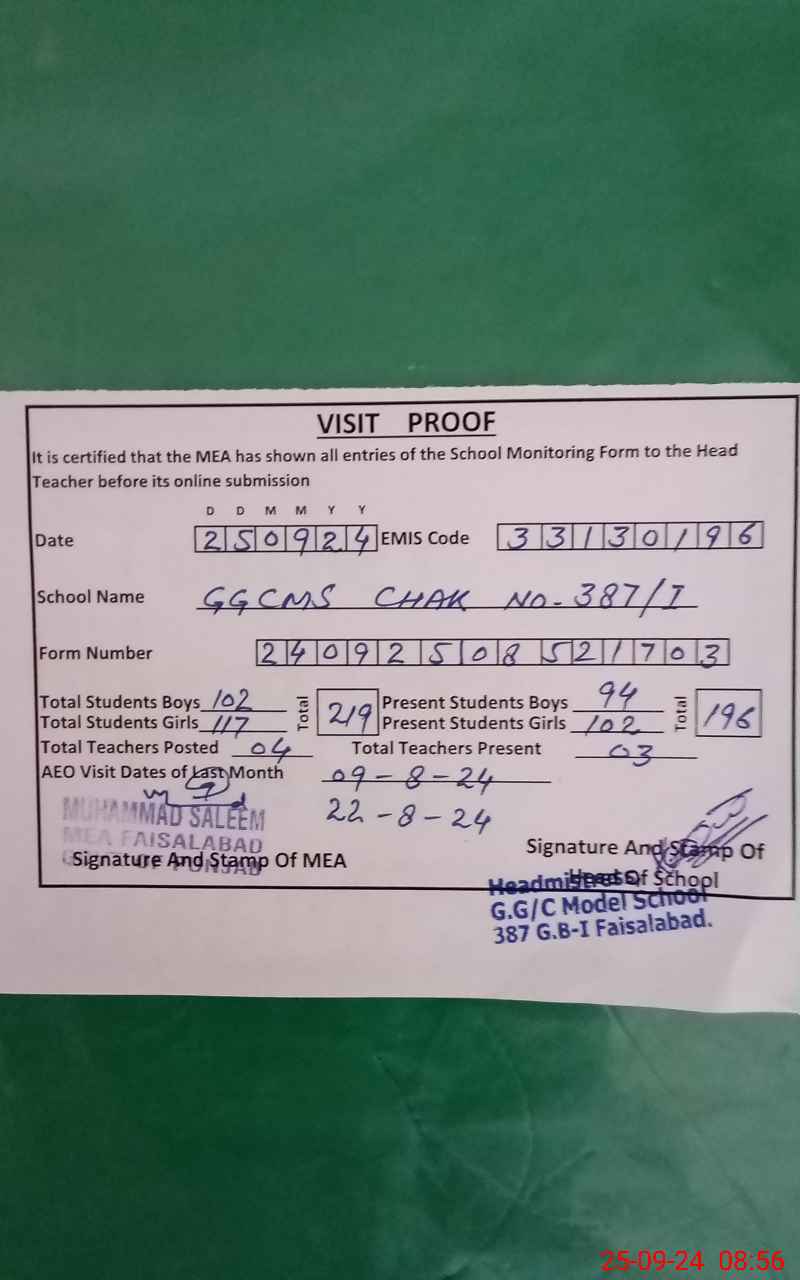 VISIT PROOF
It is certified that the MEA has shown all entries of the School Monitoring Form to the Head
Teacher before its online submission
D D M M Y Y
Date 250924 EMIS Code 33130196
School Name GGCMS CHAK NO-387/I
Form Number 24092508521703
Total Students Boys 102 Total 219 Present Students Boys 94 Total 196
Total Students Girls 117 Present Students Girls 102
Total Teachers Posted 04 Total Teachers Present 03
AEO Visit Dates of Last Month 09-8-24
22-8-24
MUHAMMAD SALEEM
MEA FAISALABAD
PUNJAB
Signature And Stamp Of MEA
Signature And Stamp Of
Head Of School
Headmistress
G.G/C Model School
387 G.B-I Faisalabad.
25-09-24 08:56